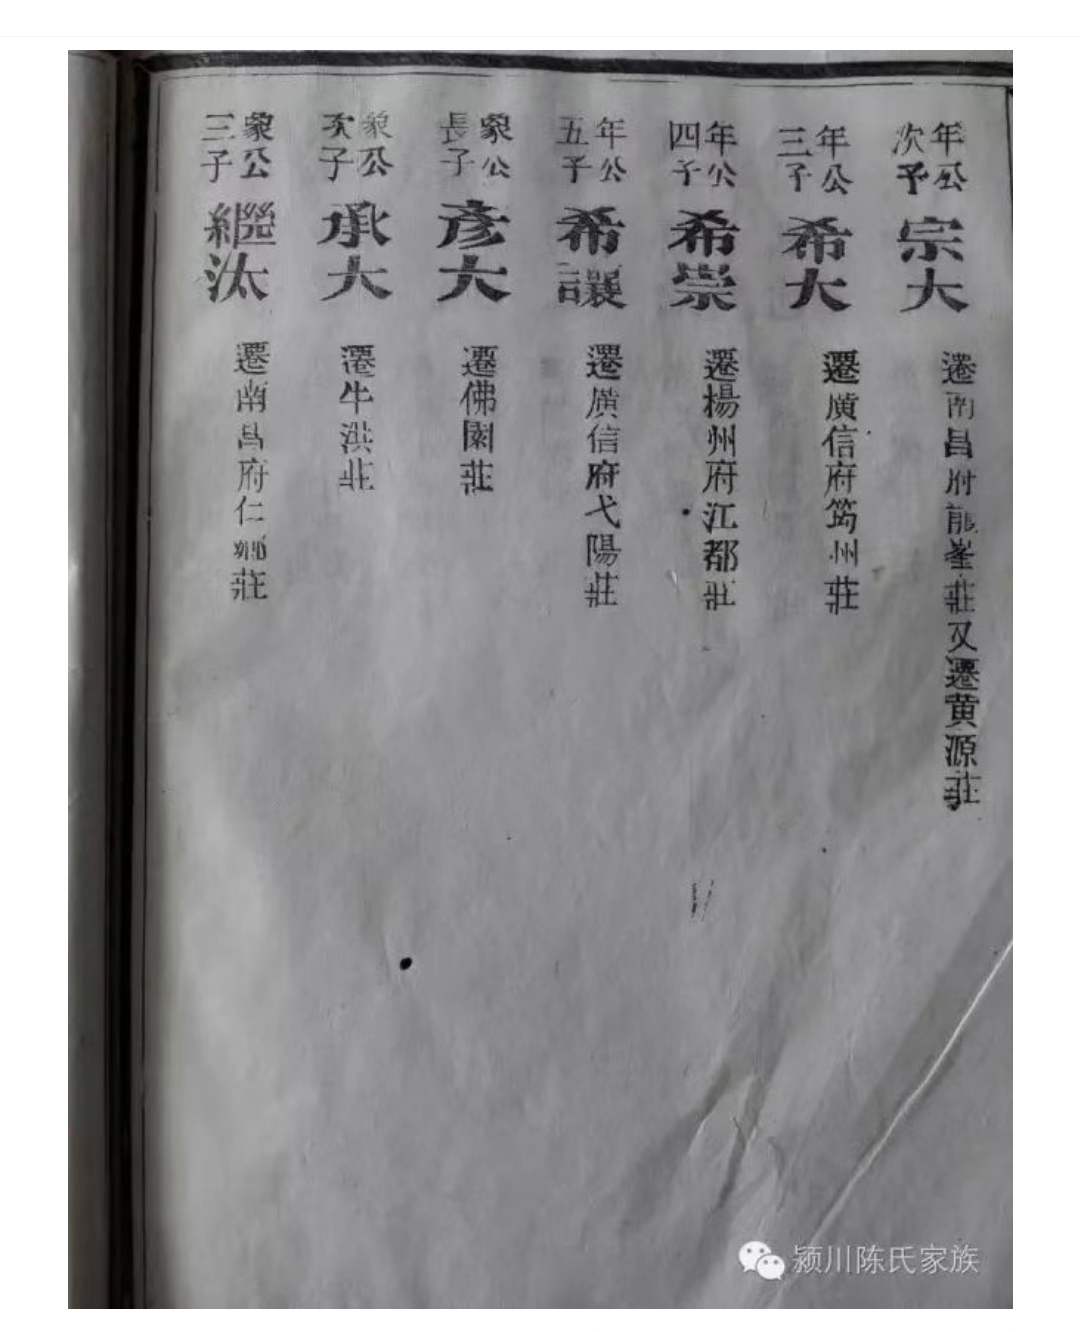 年公次子宗大 遷南昌府龍峯莊又遷黄源莊
年公三子希大 遷廣信府筠州莊
年公四子希崇 遷楊州府江都莊
年公五子希讓 遷廣信府弋陽莊
象公長子彦大 遷佛園莊
象公次子承大 遷牛洪莊
象公三子繼汰 遷南昌府仁鄉莊
颍川陈氏家族